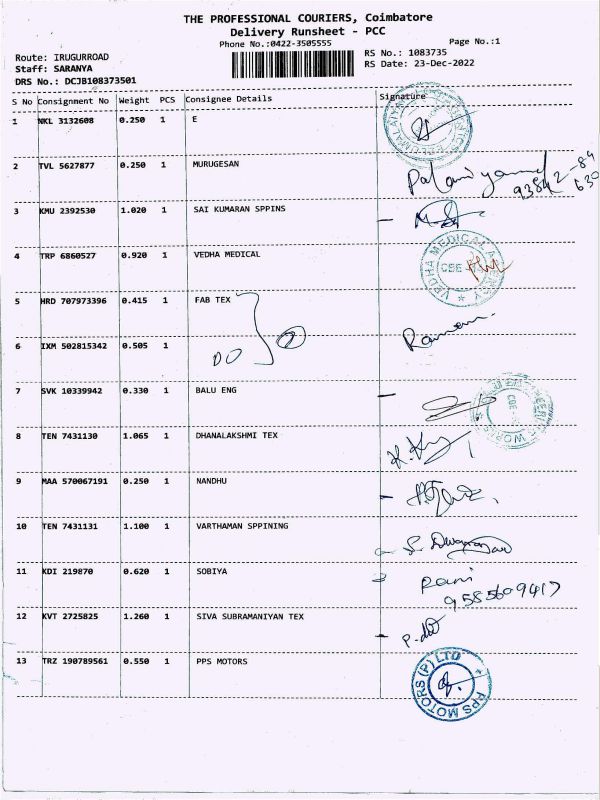 THE PROFESSIONAL COURIERS, Coimbatore
Delivery Runsheet - PCC
Phone No.:0422-3505555 Page No.:1
Route: IRUGURROAD RS No.: 1083735
Staff: SARANYA RS Date: 23-Dec-2022
DRS No.: DCJB108373501
S No Consignment No Weight PCS Consignee Details Signature
1 NKL 3132608 0.250 1 E
2 TVL 5627877 0.250 1 MURUGESAN
3 KMU 2392530 1.020 1 SAI KUMARAN SPPINS
4 TRP 6860527 0.920 1 VEDHA MEDICAL
VEDHA MEDICAL AGENCY CBE
5 HRD 707973396 0.415 1 FAB TEX
6 IXM 502815342 0.505 1
DO
7 SVK 10339942 0.330 1 BALU ENG
8 TEN 7431130 1.065 1 DHANALAKSHMI TEX
9 MAA 570067191 0.250 1 NANDHU
10 TEN 7431131 1.100 1 VARTHAMAN SPPINING
11 KDI 219870 0.620 1 SOBIYA
Rani
9585609417
12 KVT 2725825 1.260 1 SIVA SUBRAMANIYAN TEX
13 TRZ 190789561 0.550 1 PPS MOTORS
PPS MOTORS (P) LTD